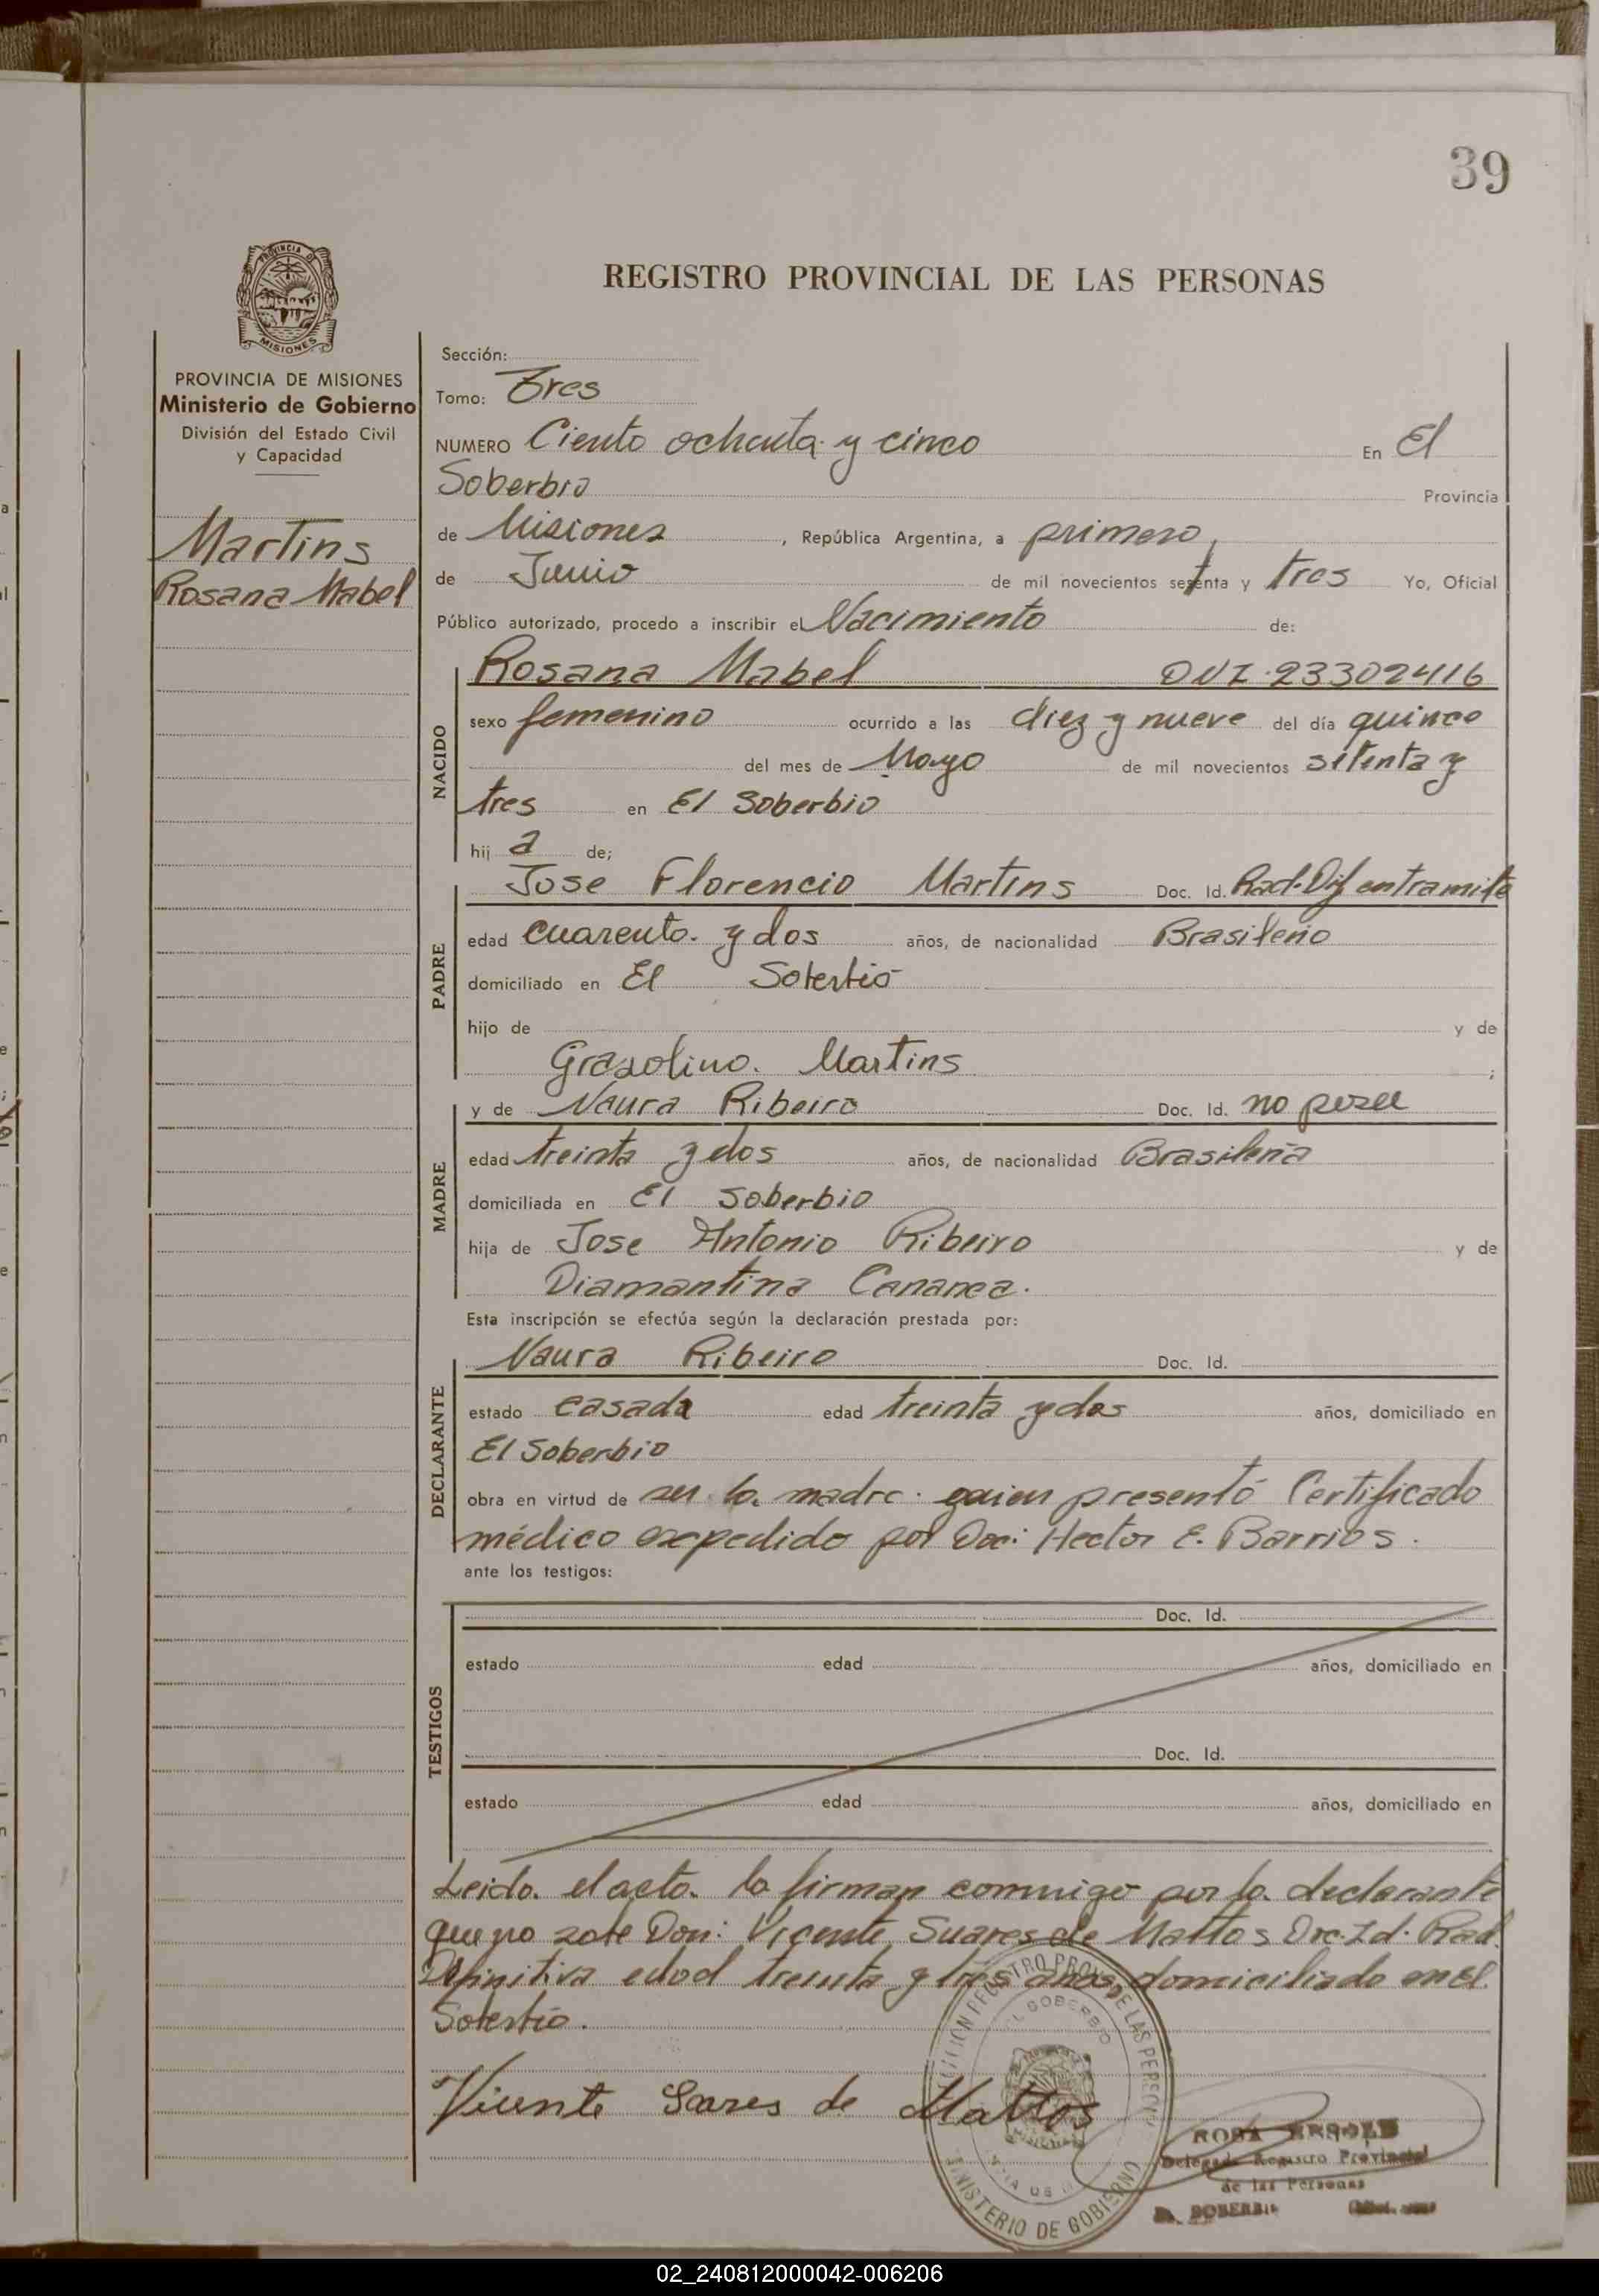 39
PROVINCIA DE
MISIONES
REGISTRO PROVINCIAL DE LAS PERSONAS
PROVINCIA DE MISIONES
Ministerio de Gobierno
División del Estado Civil
y Capacidad
Martins
Rosana Mabel
Sección:
Tomo: Tres
NUMERO Ciento ochenta y cinco En El
Soberbio Provincia
de Misiones, República Argentina, a primero
de Junio de mil novecientos setenta y tres Yo, Oficial
Público autorizado, procedo a inscribir el Nacimiento de:
NACIDO
Rosana Mabel DNI. 23302416
sexo femenino ocurrido a las diez y nueve del día quince
del mes de Mayo de mil novecientos setenta y
tres en El Soberbio
hij a de;
PADRE
Jose Florencio Martins Doc. Id. Rad. Dif en tramite
edad cuarenta y dos años, de nacionalidad Brasileño
domiciliado en El Soberbio
hijo de y de
Grasolino Martins ;
MADRE
y de Naura Ribeiro Doc. Id. no posee
edad treinta y dos años, de nacionalidad Brasileña
domiciliada en El Soberbio
hija de Jose Antonio Ribeiro y de
Diamantina Cananea.
Esta inscripción se efectúa según la declaración prestada por:
DECLARANTE
Naura Ribeiro Doc. Id.
estado casada edad treinta y dos años, domiciliado en
El Soberbio
obra en virtud de ser la madre. quien presentó Certificado
médico expedido por Doc: Hector E. Barrios.
ante los testigos:
TESTIGOS
Doc. Id.
estado edad años, domiciliado en
Doc. Id.
estado edad años, domiciliado en
Leido el acta la firman conmigo por la declarante
que no sabe Don: Vicente Suares de Mattos Doc. Id. Rad.
Definitiva edad treinta y tres años, domiciliado en El
Soberbio.
Viente Sares de Mattos
EL SOBERBIO
MINISTERIO DE GOBIERNO
ROSA
Delegada Registro Provincial
de las Personas
EL SOBERBIO
02_240812000042-006206